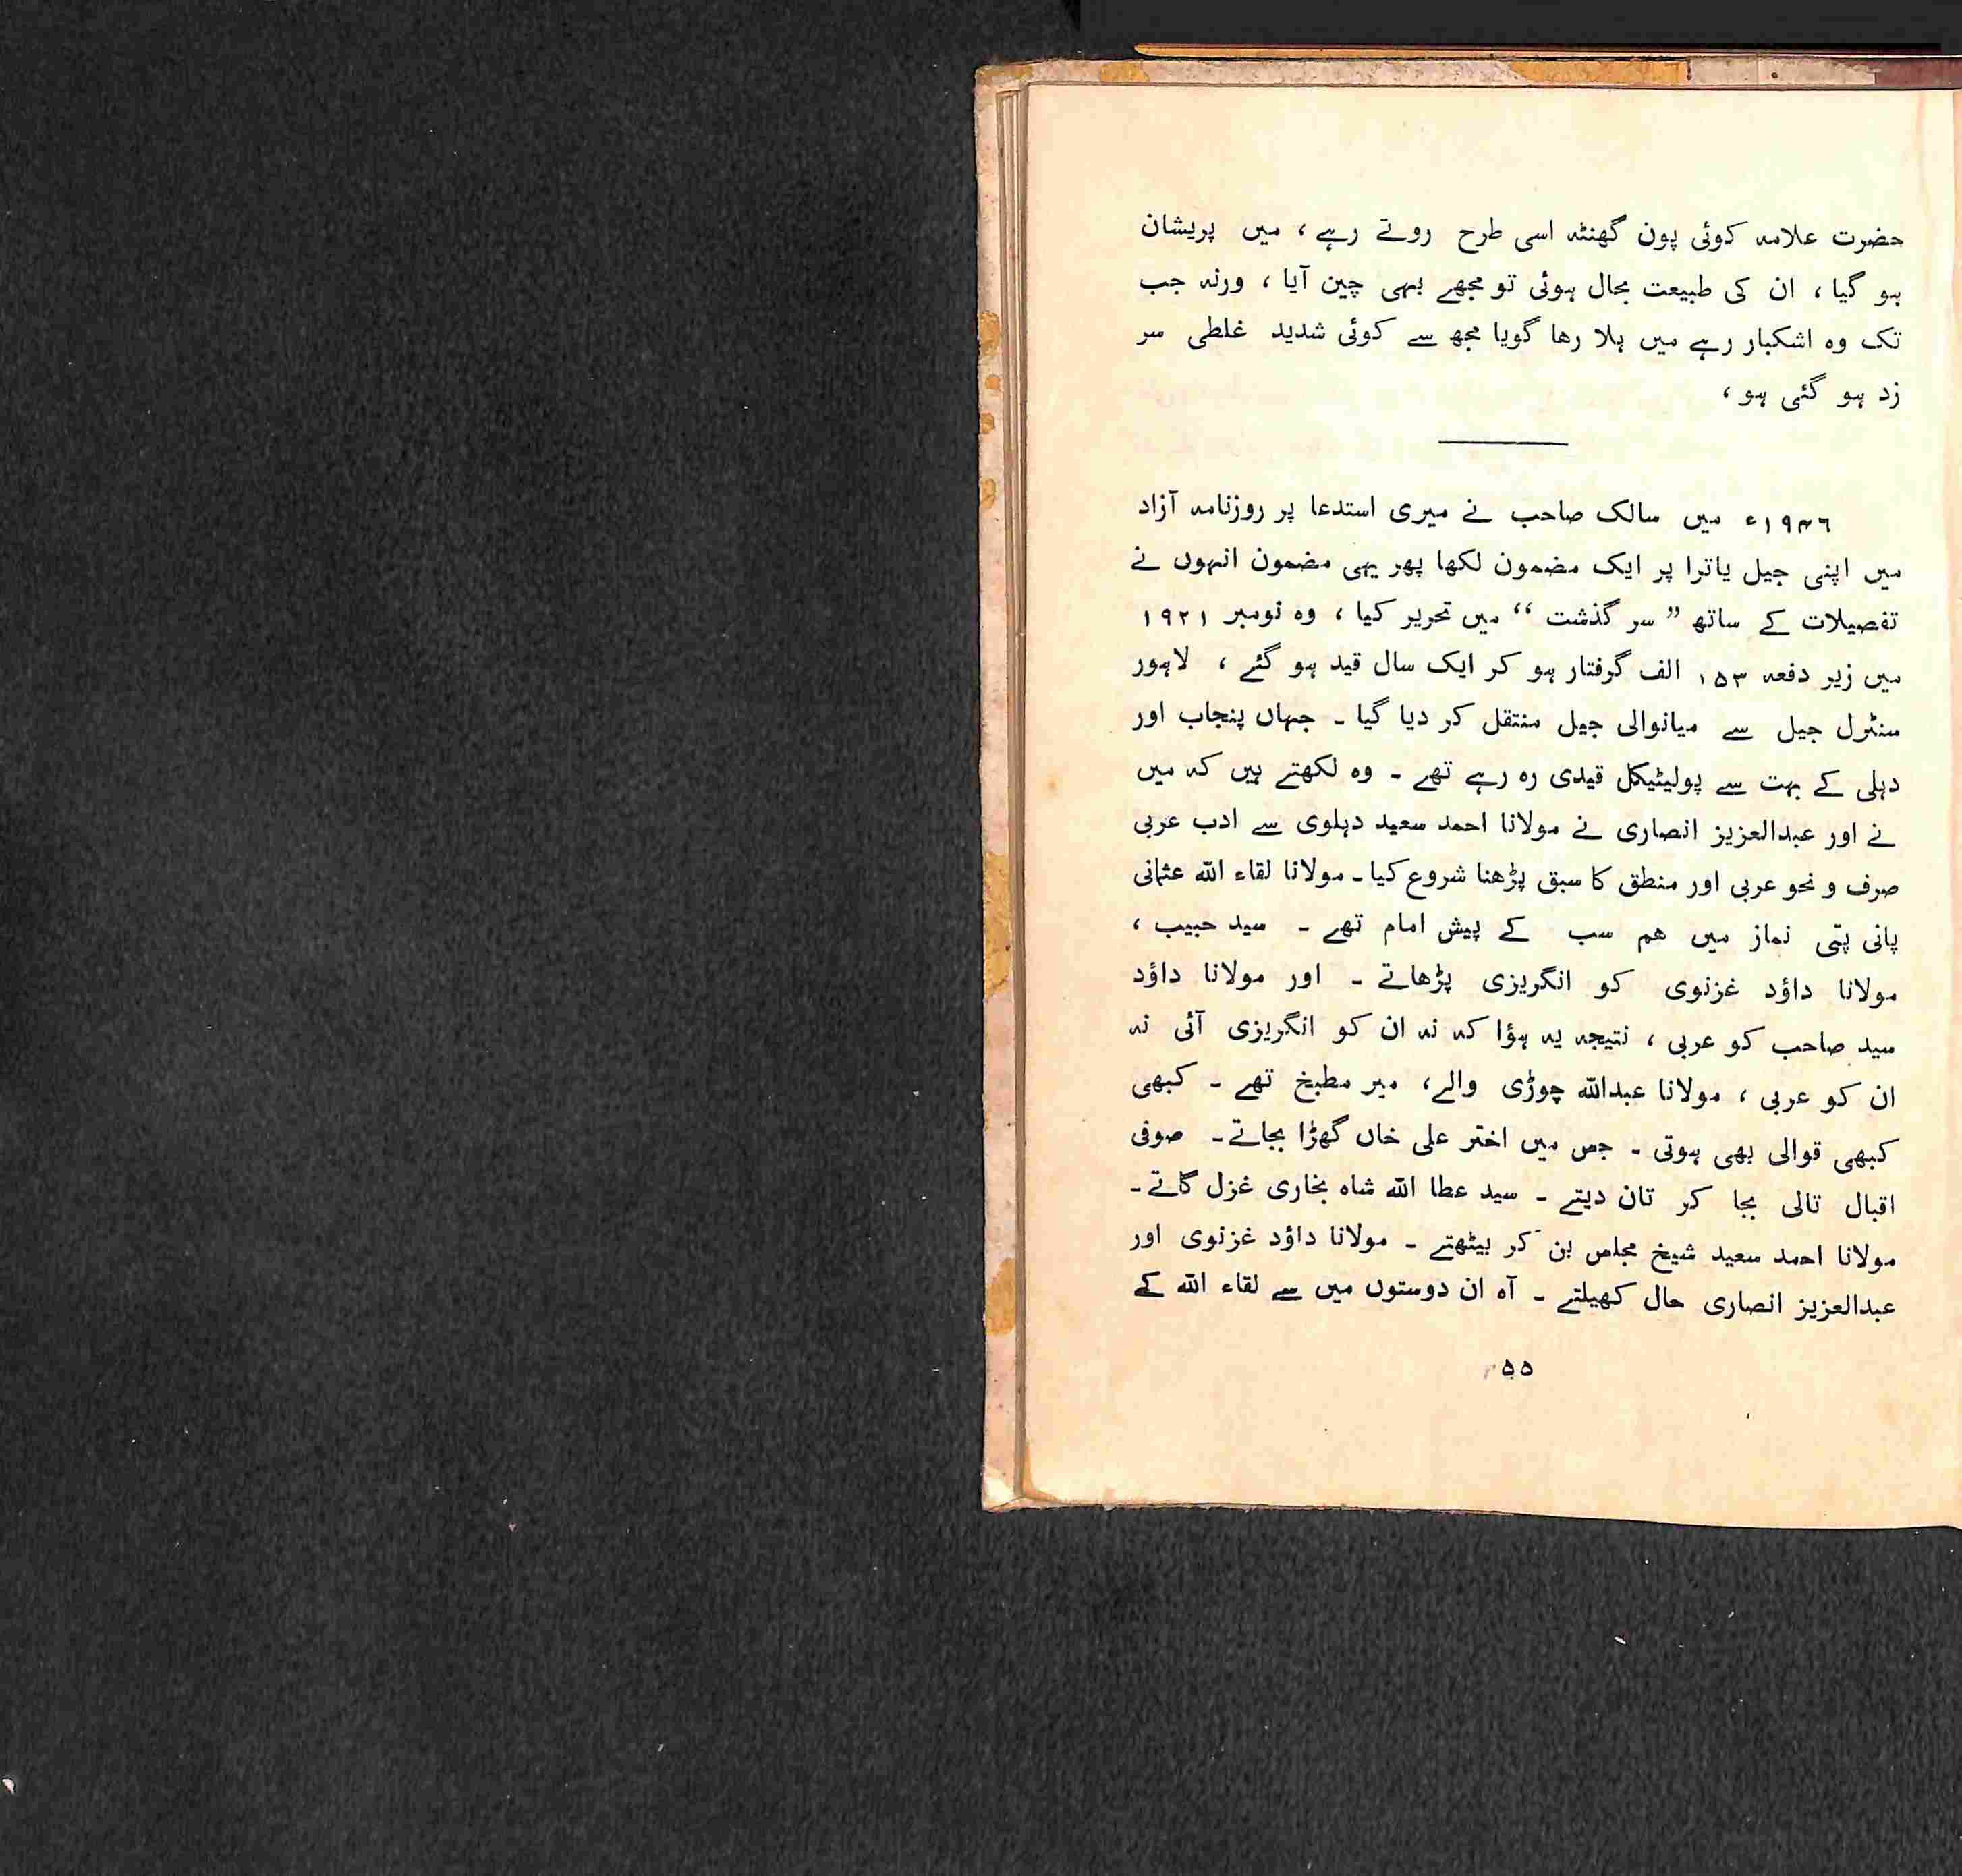 حضرت علامہ کوئی پون گھنٹہ اسی طرح روتے رہے ، میں پریشان
ہو گیا ، ان کی طبیعت بحال ہوئی تو مجھے بھی چین آیا ، ورنہ جب
تک وہ اشکبار رہے میں ہلا رھا گویا مجھ سے کوئی شدید غلطی سر
زد ہو گئی ہو ،
۱۹۴۶ء میں سالک صاحب نے میری استدعا پر روزنامہ آزاد
میں اپنی جیل یاترا پر ایک مضمون لکھا پھر یہی مضمون انہوں نے
تفصیلات کے ساتھ ” سر گذشت “ میں تحریر کیا ، وہ نومبر ۱۹۲۱
میں زیر دفعہ ۱۵۳ الف گرفتار ہو کر ایک سال قید ہو گئے ، لاہور
سنٹرل جیل سے میانوالی جیل منتقل کر دیا گیا ۔ جہاں پنجاب اور
دہلی کے بہت سے پولیٹیکل قیدی رہ رہے تھے ۔ وہ لکھتے ہیں کہ میں
نے اور عبدالعزیز انصاری نے مولانا احمد سعید دہلوی سے ادب عربی
صرف و نحو عربی اور منطق کا سبق پڑھنا شروع کیا ۔ مولانا لقاء اللہ عثمانی
پانی پتی نماز میں ھم سب کے پیش امام تھے ۔ سید حبیب ،
مولانا داؤد غزنوی کو انگریزی پڑھاتے ۔ اور مولانا داؤد
سید صاحب کو عربی ، نتیجہ یہ ہؤا کہ نہ ان کو انگریزی آئی نہ
ان کو عربی ، مولانا عبداللہ چوڑی والے، میر مطبخ تھے ۔ کبھی
کبھی قوالی بھی ہوتی ۔ جس میں اختر علی خاں گھڑا بجاتے ۔ صوفی
اقبال تالی بجا کر تان دیتے ۔ سید عطا اللہ شاہ بخاری غزل گاتے ۔
مولانا احمد سعید شیخ مجلس بن کر بیٹھتے ۔ مولانا داؤد غزنوی اور
عبدالعزیز انصاری حال کھیلتے ۔ آہ ان دوستوں میں سے لقاء اللہ کے
۵۵